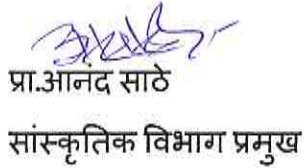 प्रा.आनंद साठे
सांस्कृतिक विभाग प्रमुख